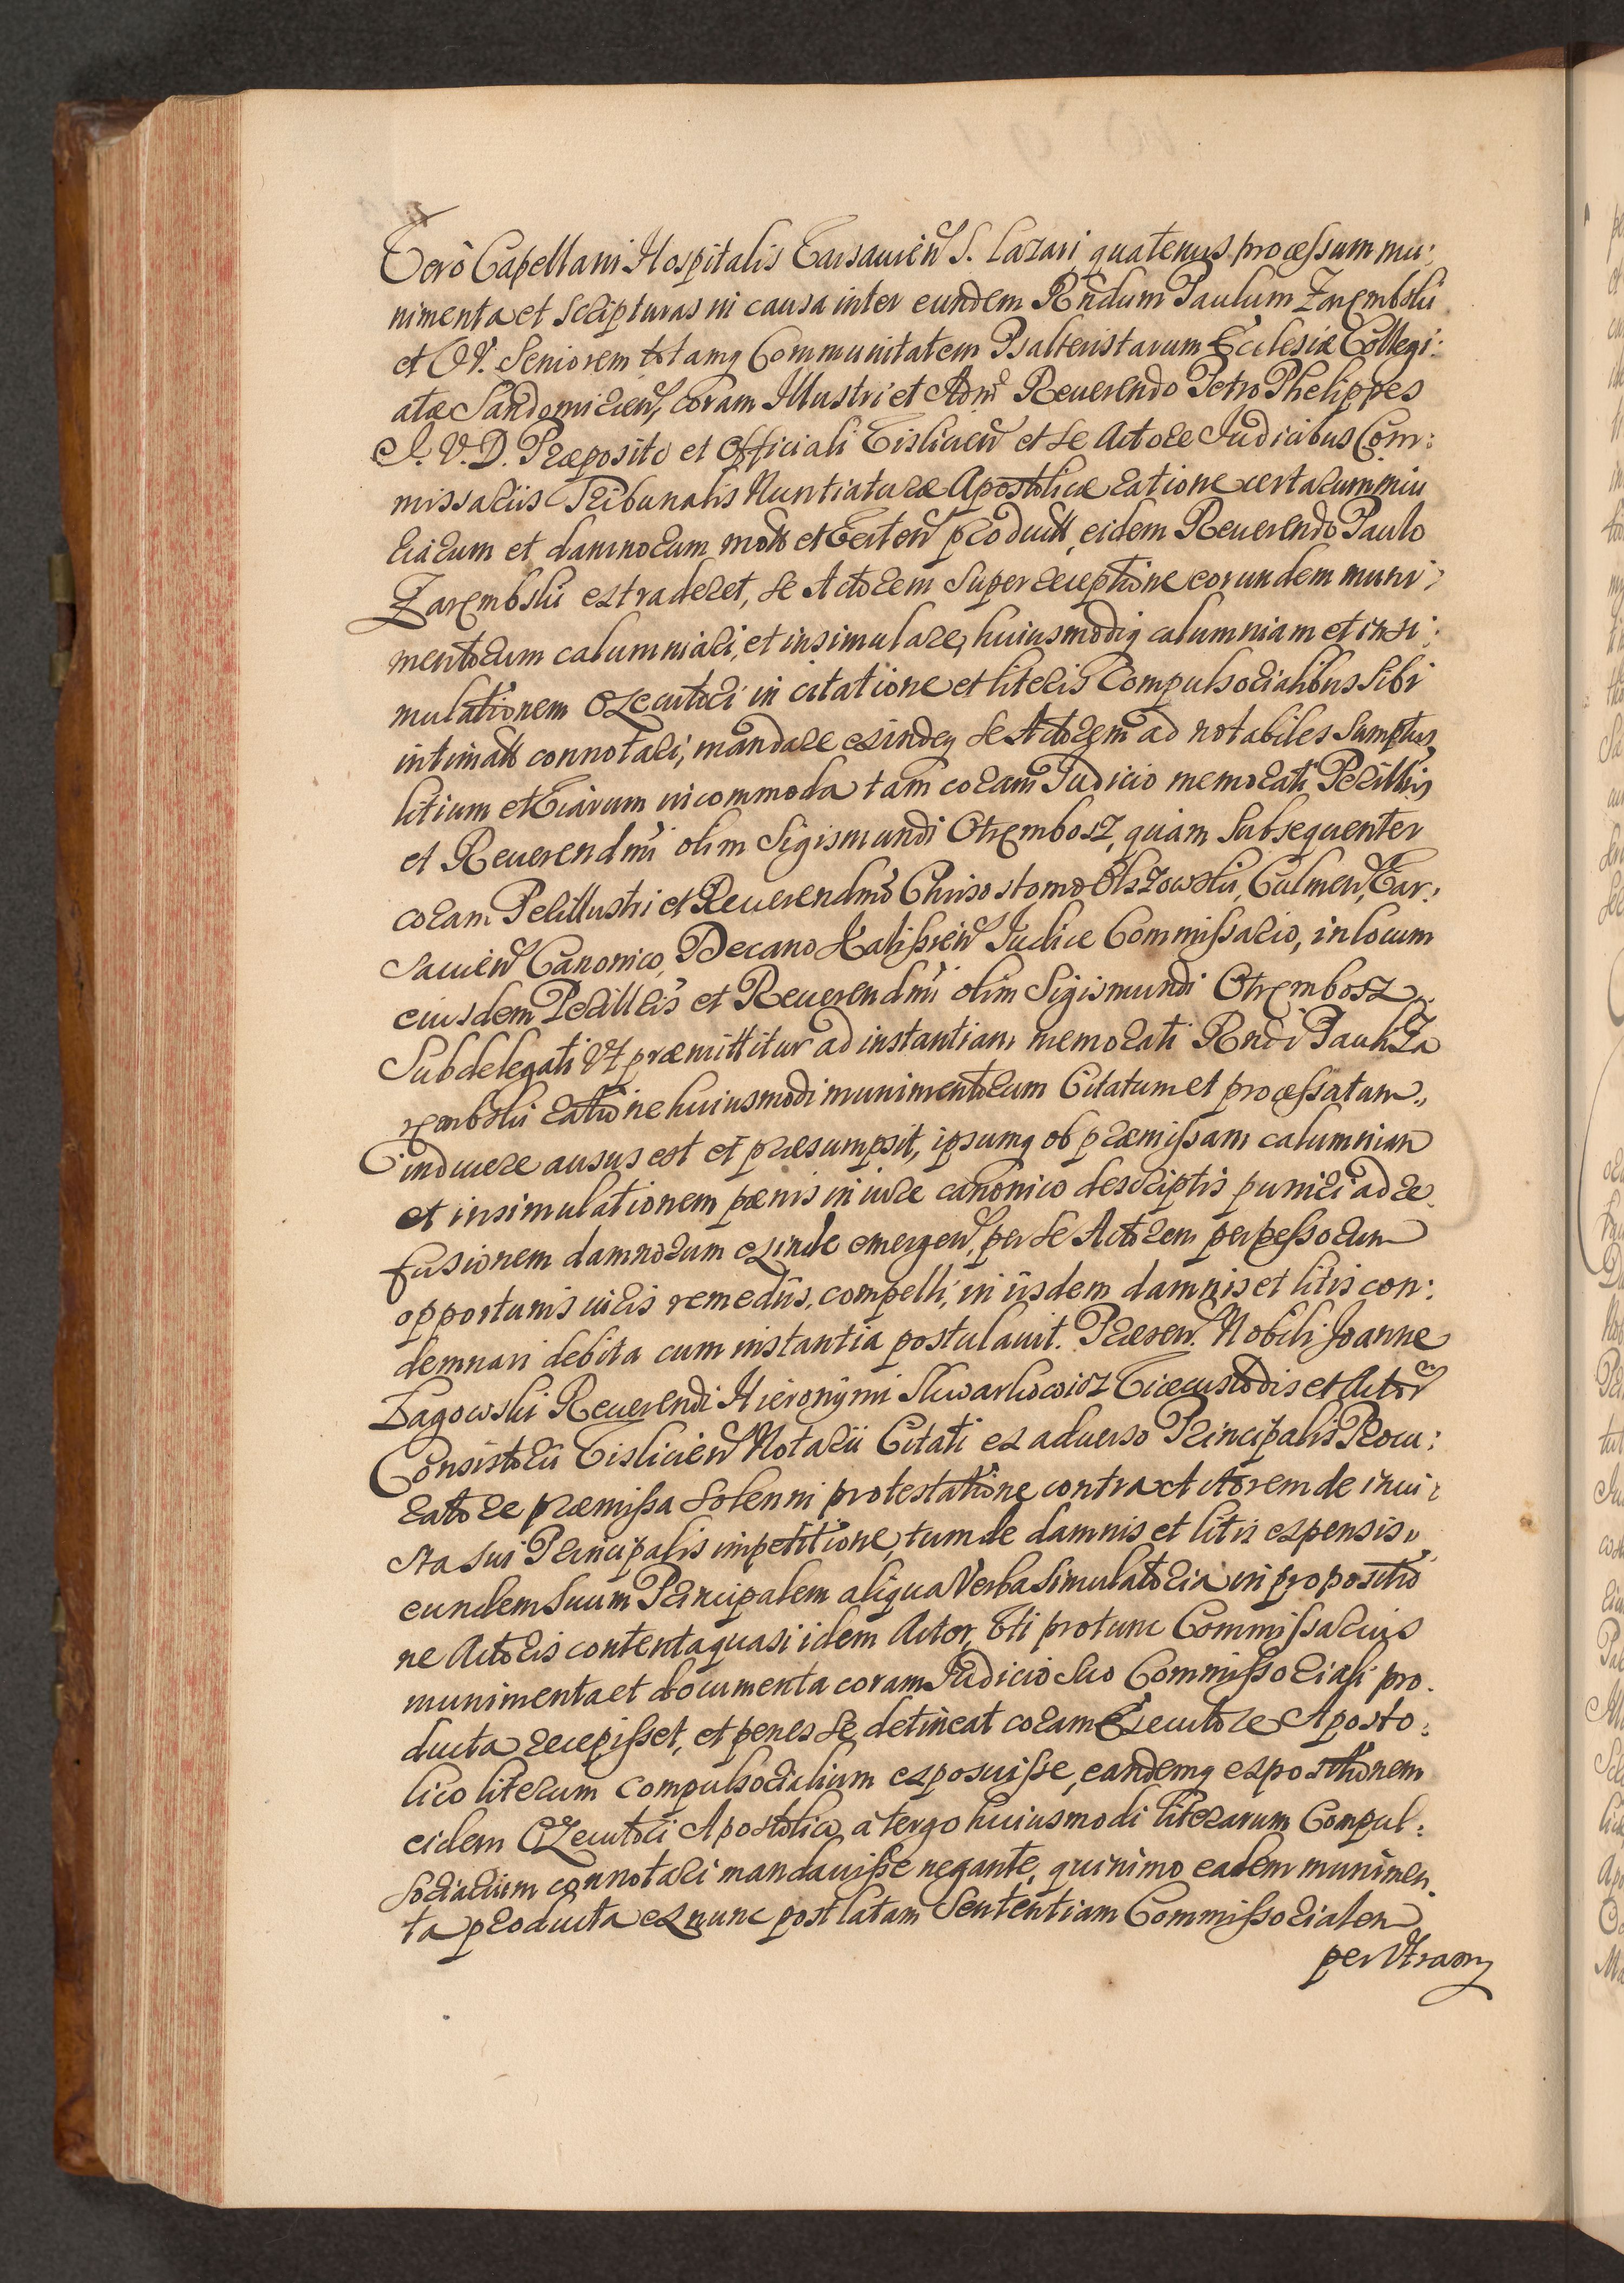 Verò Capellani Hospitalis Varsauien S. Lazari, quatenus processum mu:
nimenta et scripturas in causa inter eundem Rndum Paulum Zarembski
et VV. Seniorem totamq Communitatem Psalteristarum Ecclesiæ Collegi:
atæ Sandomirien, coram Illustri et Adm Reuerendo Petro Phelippes
I. V. D. Præposito et Officiali Vislicien et se Actore Iudicibus Com:
missariis Tribunalis Nuntiaturæ Apostolicæ ratione certarum iniu
riarum et damnorum mots et Verten product, eidem Reuerendo Paulo
Zarembski extraderet, se Actorem super receptione eorundem muni:
mentorum calumniari, et insimulare, huiusmodiq calumniam et insi:
mulationem Executori in citatione et literis Compulsorialibus sibi
intimats connotari, mandare exindeq se Actorem ad notabiles sumptus
litium et Viarum incommoda tam coram Iudicio memorati Perillris
et Reuerendmi olim Sigismundi Otrembosz, quam subsequenter
coram Perillustri et Reuerendmo Chrisostomo Olszowski, Culmen, Var:
sauien Canonico, Decano Kalissien Iudice Commissario, in locum
eiusdem Perillris et Reuerendmi olim Sigismundi Otrembosz
Subdelegati Vt præmittitur ad instantiam memorati Rndi Pauli Za
rembski ratione huiusmodi munimentorum Citatum et processatum,,
inducere ausus est et præsumpsit, ipsumq ob præmissam calumniam
et insimulationem pœnis in iure canonico descriptis puniri ad re
fusionem damnorum exinde emergen, per se Actorem perpessorum
opportunis iuris remediis, compelli, in iisdem damnis et litis con:
demnari debita cum instantia postulauit. Præsen. Nobili Joanne
Lagowski Reuerendi Hieronymi Skwarkowicz Vicecustodis et Actor
Consistorii Vislicien Notarii Citati ex aduerso Principalis Procu:
ratore præmissa solenni protestatione contra Actorem de iniu:
sta sui Principalis impetitione, tum de damnis et litis expensis,,
eundem suum Principalem aliqua Verba simulatoria in propositio
ne Actoris contenta quasi idem Actor, Vti protunc Commissarius
munimenta et documenta coram Iudicio suo Commissoriali pro.
ducta recepisset, et penes se detineat coram Executore Aposto:
lico literum compulsorialium exposuisse, eandemq expositionem
eidem Executori Apostolico à tergo huiusmodi literarum Compul:
sorialium connotari mandauisse negante, quinimo eadem munimen.
ta producta ex nunc post latam Sententiam Commissorialem
per Vtramq